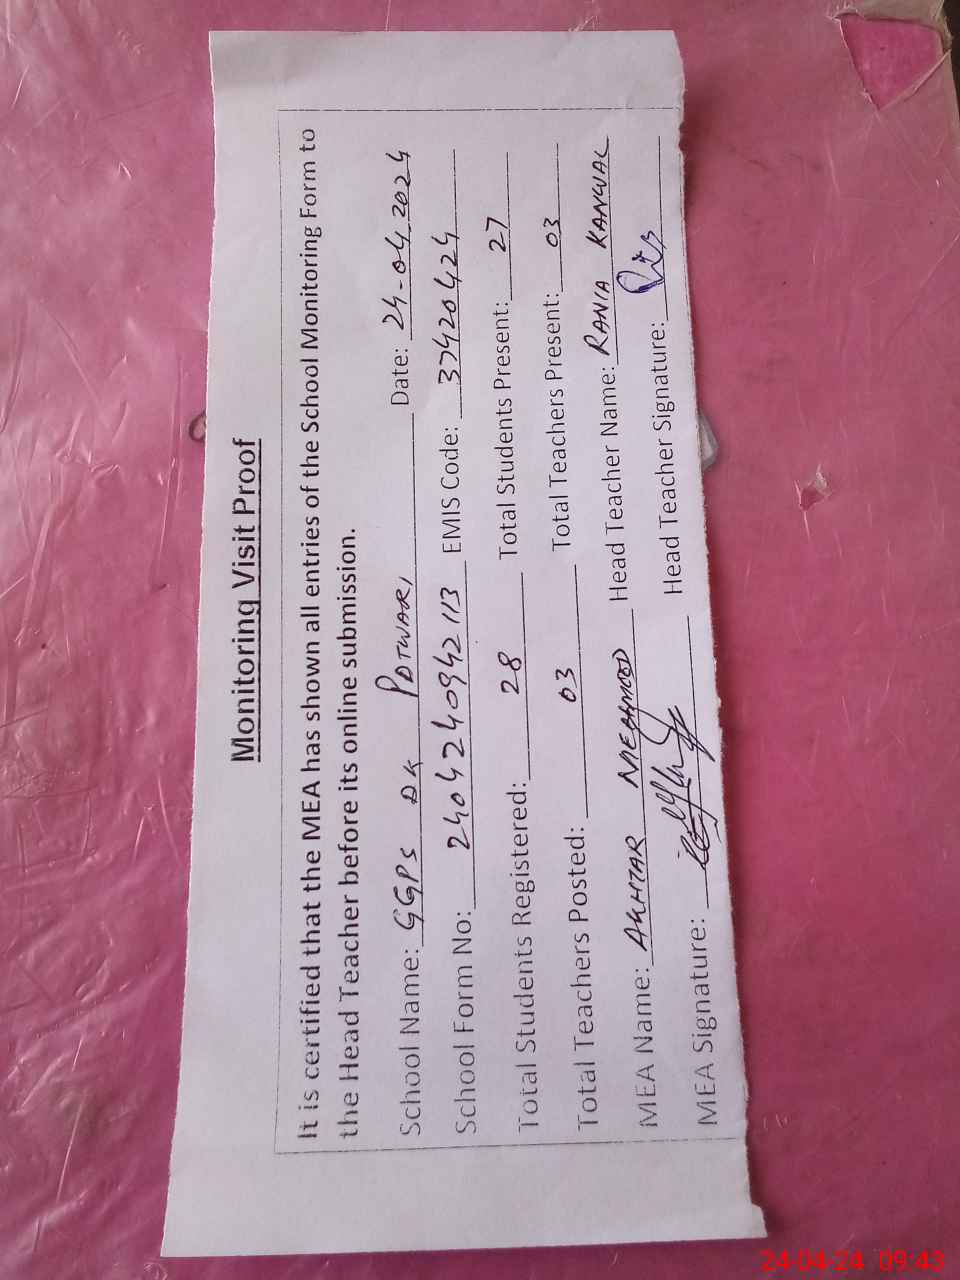 Monitoring Visit Proof
It is certified that the MEA has shown all entries of the School Monitoring Form to
the Head Teacher before its online submission.
School Name: GGPS DK POTWARI Date: 24-04-2024
School Form No: 240424094211 3 EMIS Code: 37420424
Total Students Registered: 28 Total Students Present: 27
Total Teachers Posted: 03 Total Teachers Present: 03
MEA Name: AKHTAR MEAHMOOD Head Teacher Name: RANIA KANWAL
MEA Signature: Head Teacher Signature:
24-04-24 09:43